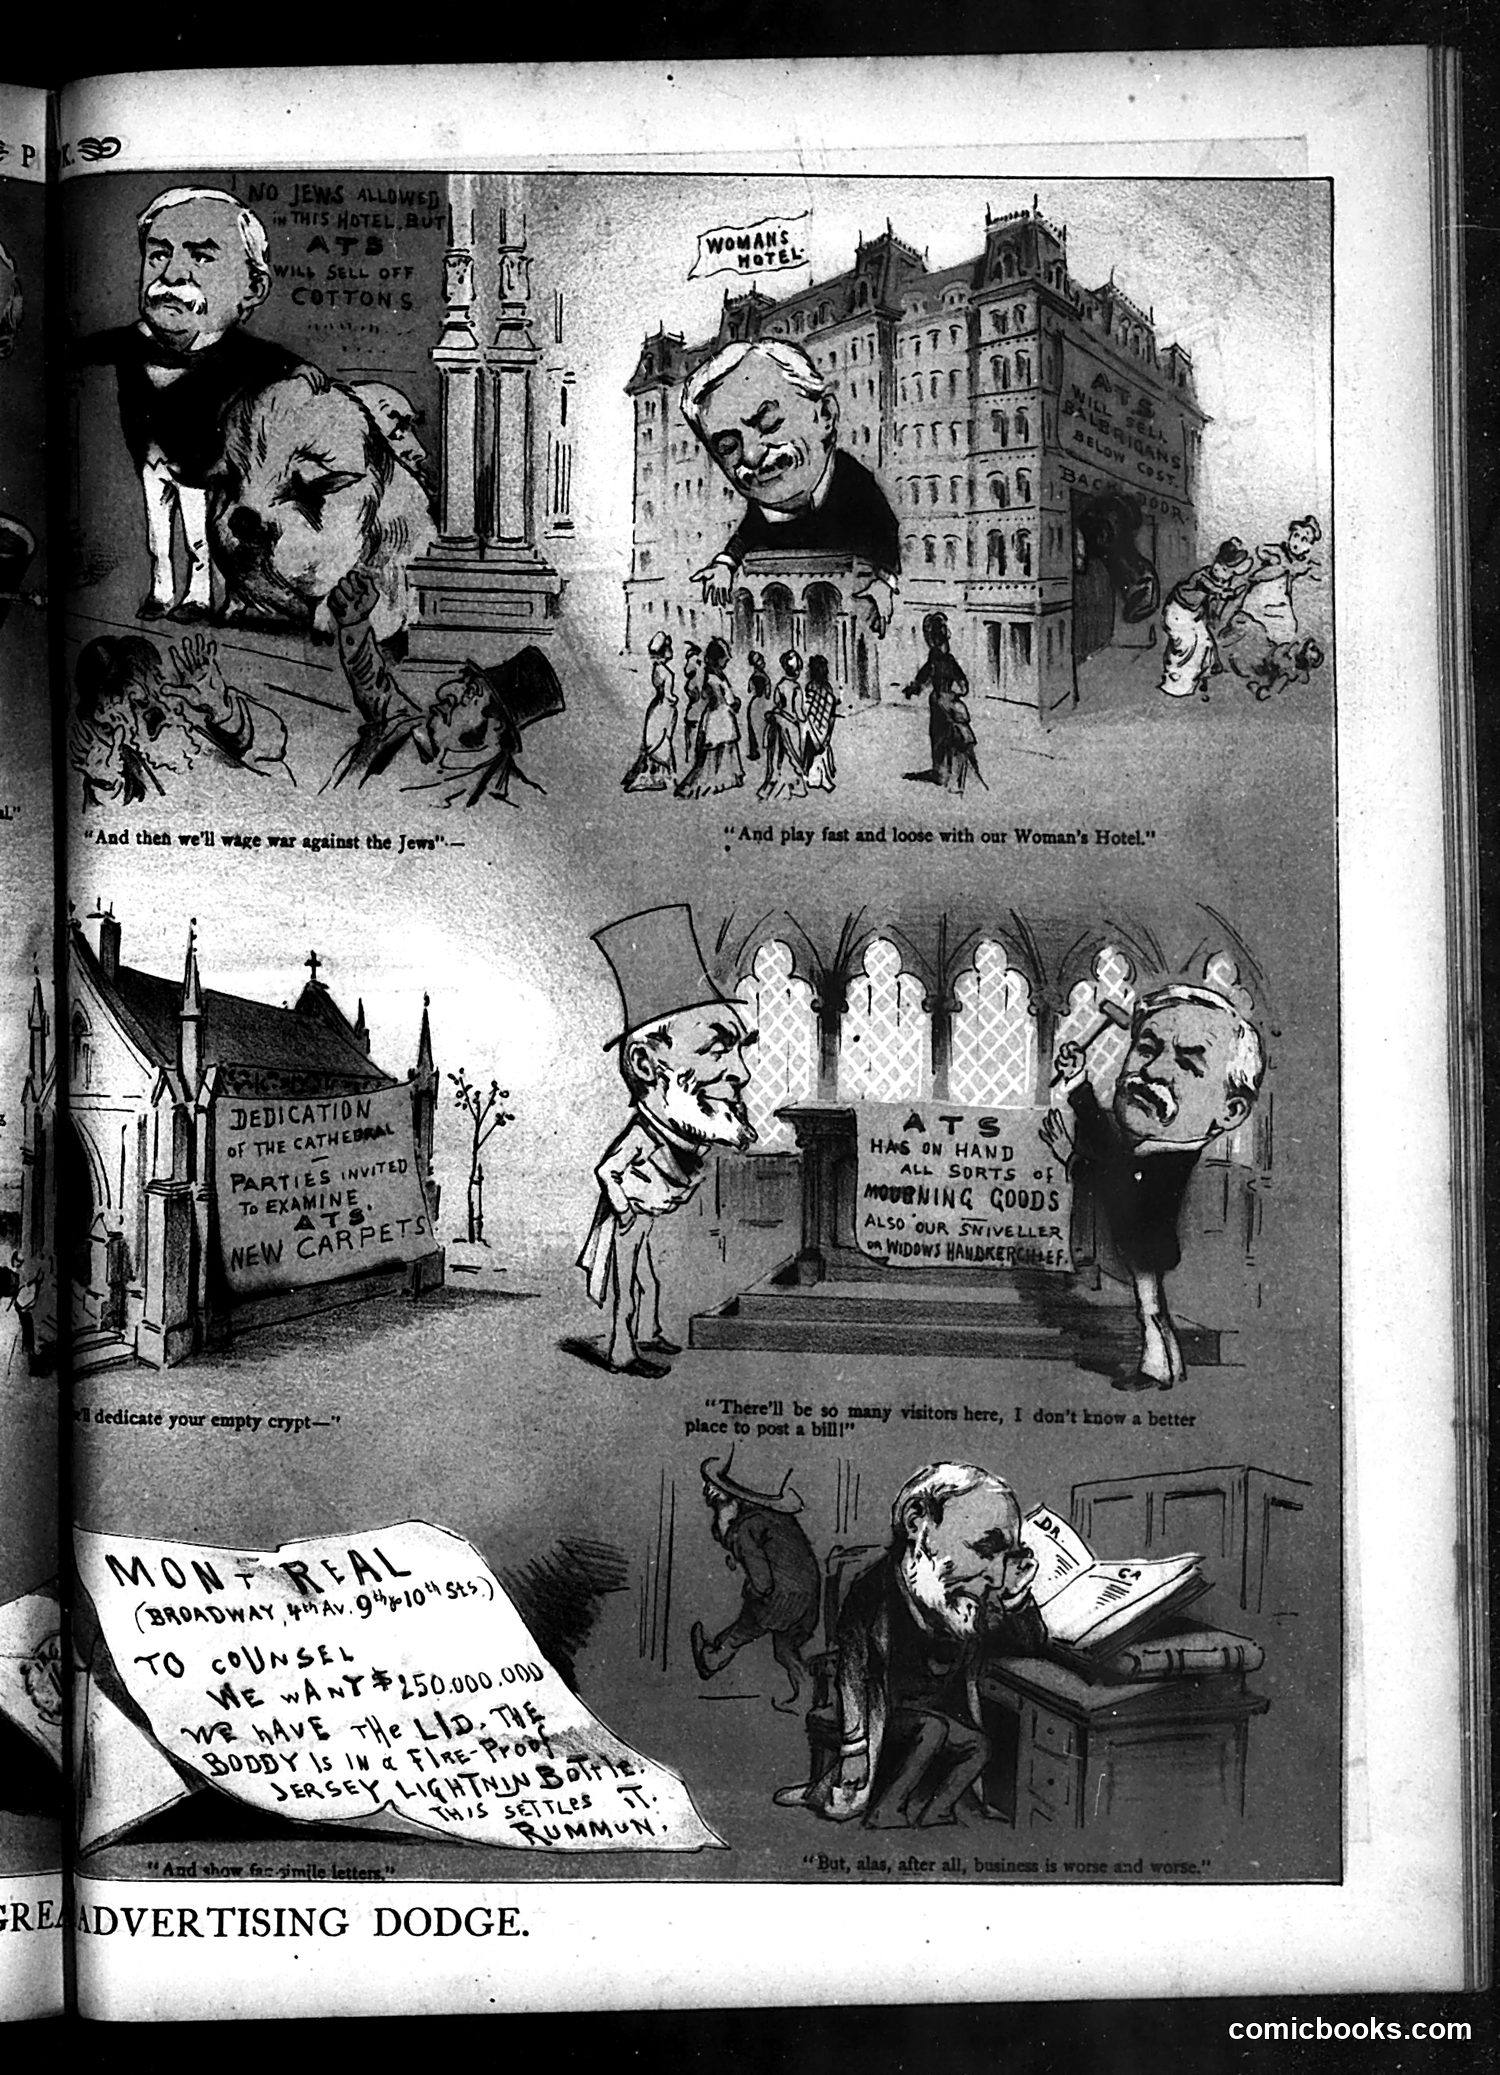 P K.
NO JEWS ALLOWED
IN THIS HOTEL. BUT
ATS
WILL SELL OFF
COTTONS
WOMAN'S
HOTEL.
ATS
WILL SELL
BALBRIGANS
BELOW COST.
BACK DOOR.
al."
"And then we'll wage war against the Jews"—
"And play fast and loose with our Woman's Hotel."
DEDICATION
OF THE CATHEDRAL
PARTIES INVITED
TO EXAMINE
ATS.
NEW CARPETS
ATS
HAS ON HAND
ALL SORTS of
MOURNING GOODS
ALSO OUR SNIVELLER
OR WIDOWS HANDKERCHIEF.
'll dedicate your empty crypt—"
"There'll be so many visitors here, I don't know a better
place to post a bill!"
MONT REAL
(BROADWAY, 4th AV. 9th to 10th Sts.)
TO COUNSEL
WE WANT $250.000.000
WE HAVE THe LID. THE
BODDY IS IN a FIRE-Proof
JERSEY LIGHTNIN BOTTlE.
THIS SETTLES IT.
RUMMUN.
DR.
CR
"And show fac-simile letters,"
"But, alas, after all, business is worse and worse."
GREA ADVERTISING DODGE.
comicbooks.com